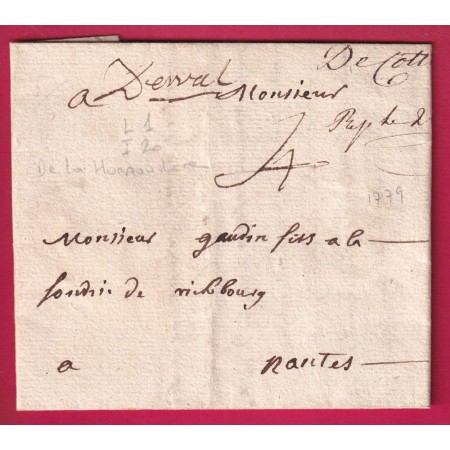 De Cott
a Derval Monsieur
Rep le 2
L 1
I 20
4
De la Hunaudiere
1779
Monsieur gaudin fils a la
fondrie de richbourg
a nantes